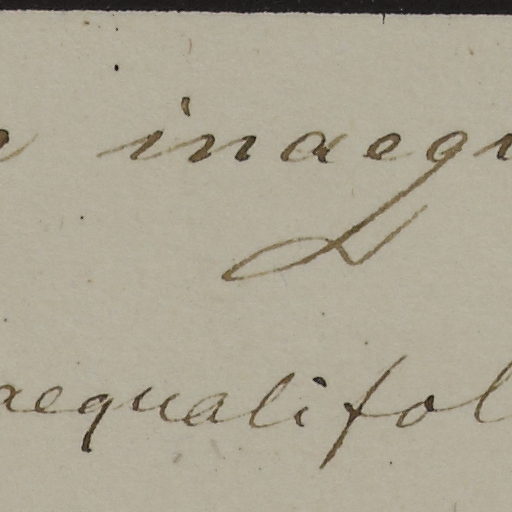 inaequ
aequalifol